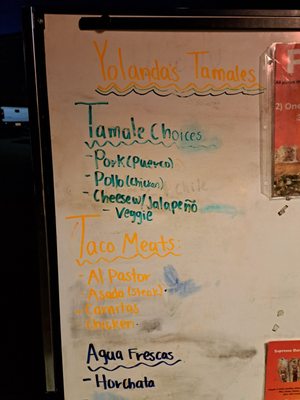 Yolanda's Tamales
Tamale Choices
- Pork (Puerco)
- Pollo (Chicken)
- Cheese w/ Jalapeño
- Veggie
Taco Meats:
- Al Pastor
- Asada (Steak)
- Carnitas
- Chicken
Agua Frescas
- Horchata
2) On